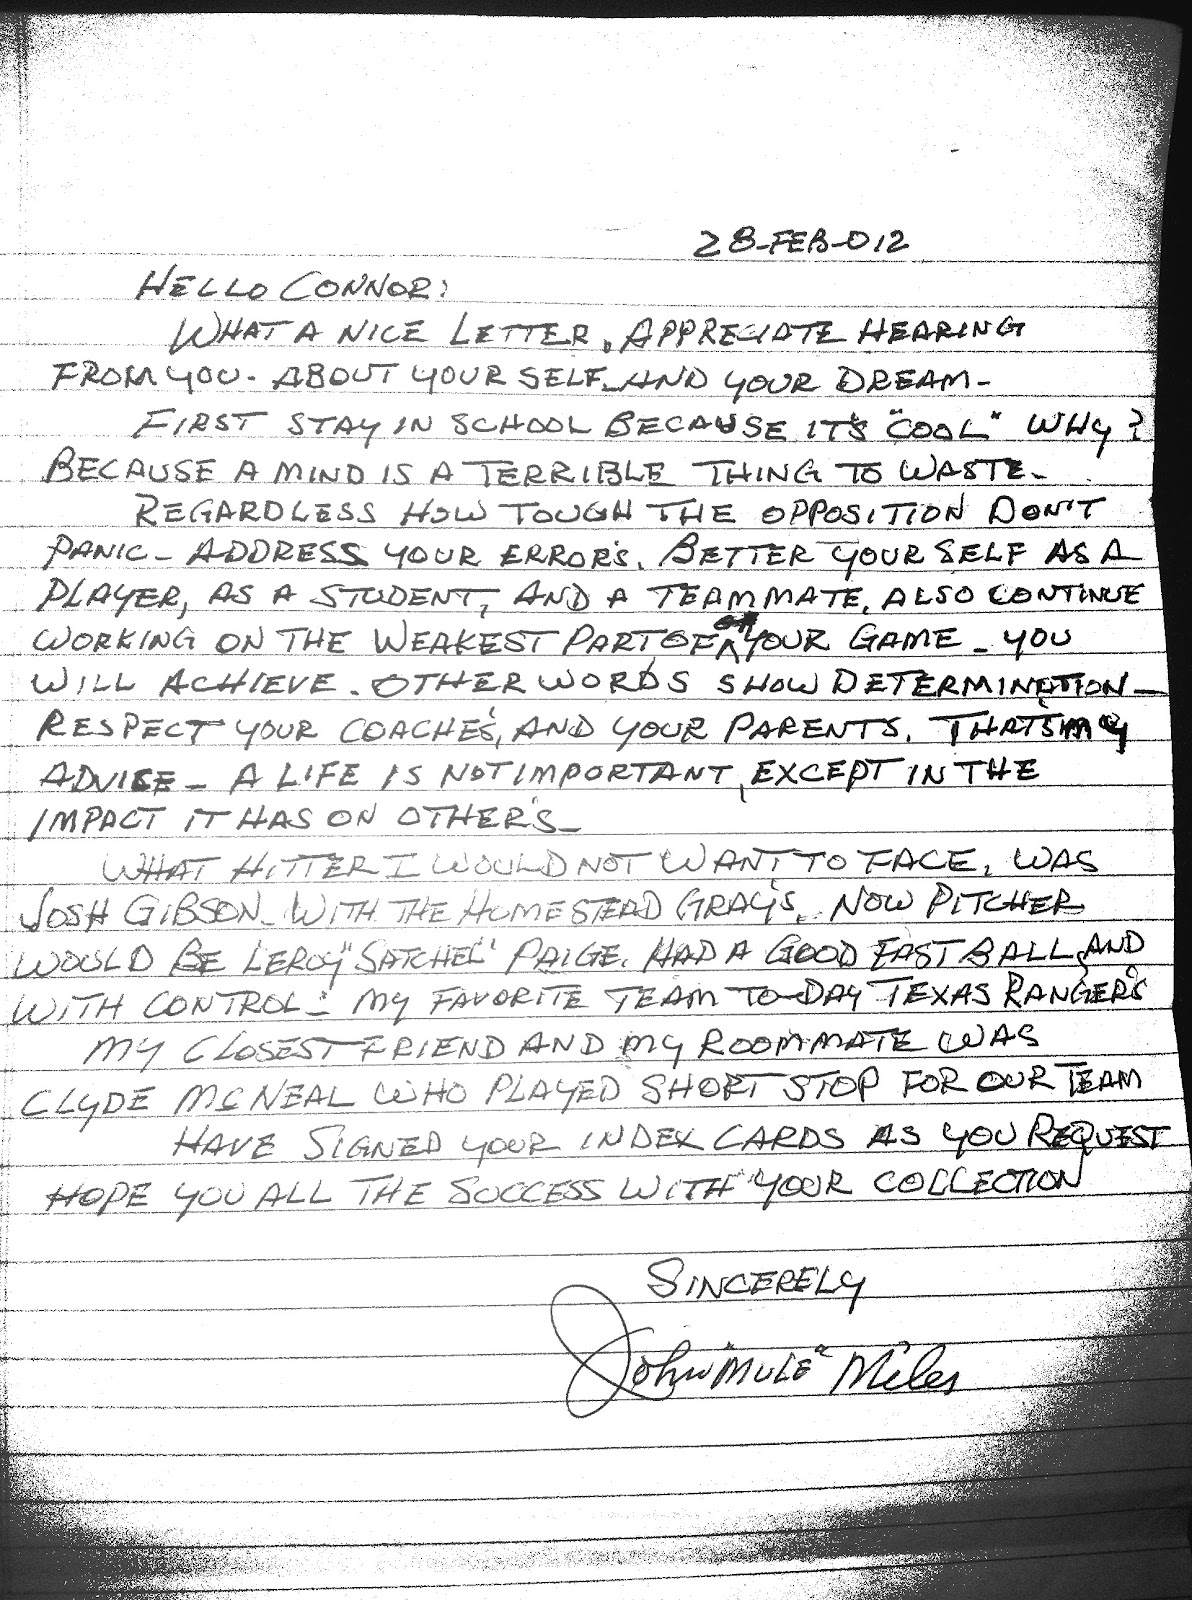 28-FEB-012
HELLO CONNOR:
WHAT A NICE LETTER, APPRECIATE HEARING
FROM YOU. ABOUT YOUR SELF AND YOUR DREAM-
FIRST STAY IN SCHOOL BECAUSE IT'S "COOL" WHY?
BECAUSE A MIND IS A TERRIBLE THING TO WASTE-
REGARDLESS HOW TOUGH THE OPPOSITION DON'T
PANIC- ADDRESS YOUR ERROR'S. BETTER YOUR SELF AS A
PLAYER, AS A STUDENT, AND A TEAMMATE, ALSO CONTINUE
WORKING ON THE WEAKEST PART OF YOUR GAME - YOU
WILL ACHIEVE. OTHER WORDS SHOW DETERMINATION-
RESPECT YOUR COACHE'S, AND YOUR PARENTS. THAT'S MY
ADVISE- A LIFE IS NOT IMPORTANT, EXCEPT IN THE
IMPACT IT HAS ON OTHER'S-
WHAT HITTER I WOULD NOT WANT TO FACE, WAS
JOSH GIBSON- WITH THE HOMESTEAD GRAY'S. NOW PITCHER
WOULD BE LEROY "SATCHEL" PAIGE. HAD A GOOD FAST BALL, AND
WITH CONTROL- MY FAVORITE TEAM TO-DAY TEXAS RANGER'S
MY CLOSEST FRIEND AND MY ROOMMATE WAS
CLYDE MCNEAL WHO PLAYED SHORT STOP FOR OUR TEAM
HAVE SIGNED YOUR INDEX CARDS AS YOU REQUEST
HOPE YOU ALL THE SUCCESS WITH YOUR COLLECTION
SINCERELY
John "MULE" Miles